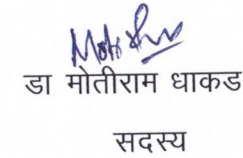 डा मोतीराम धाकड
सदस्य